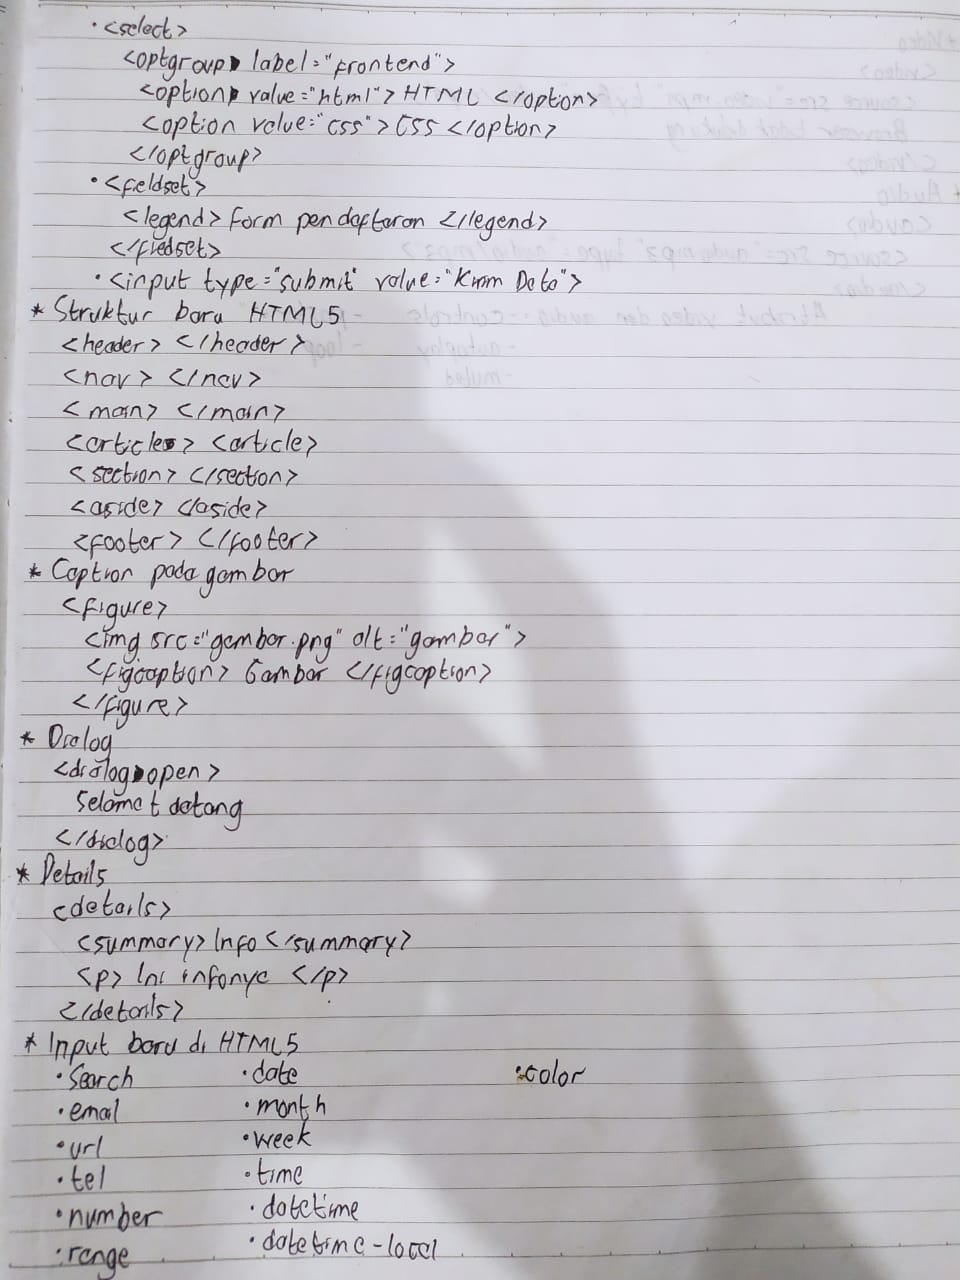 • <select>
<optgroup label="frontend">
<option value="html"> HTML </option>
<option value="css"> CSS </option>
</optgroup>
• <fieldset>
<legend> Form pendaftaran </legend>
</fiedset>
• <input type="submit" value="Kirim Data">
* Struktur baru HTML5
<header> </header>
<nav> </nav>
<main> </main>
<article> <article>
<section> </section>
<aside> </aside>
<footer> </footer>
* Caption pada gambar
<figure>
<img src="gambar.png" alt="gambar">
<figcaption> Gambar </figcaption>
</figure>
* Dialog
<dialog open>
Selamat datang
</dialog>
* Details
<details>
<summary> Info </summary>
<p> Ini infonya </p>
</details>
* Input baru di HTML5
• Search • date • color
• email • month
• url • week
• tel • time
• number • datetime
• range • datetime-local